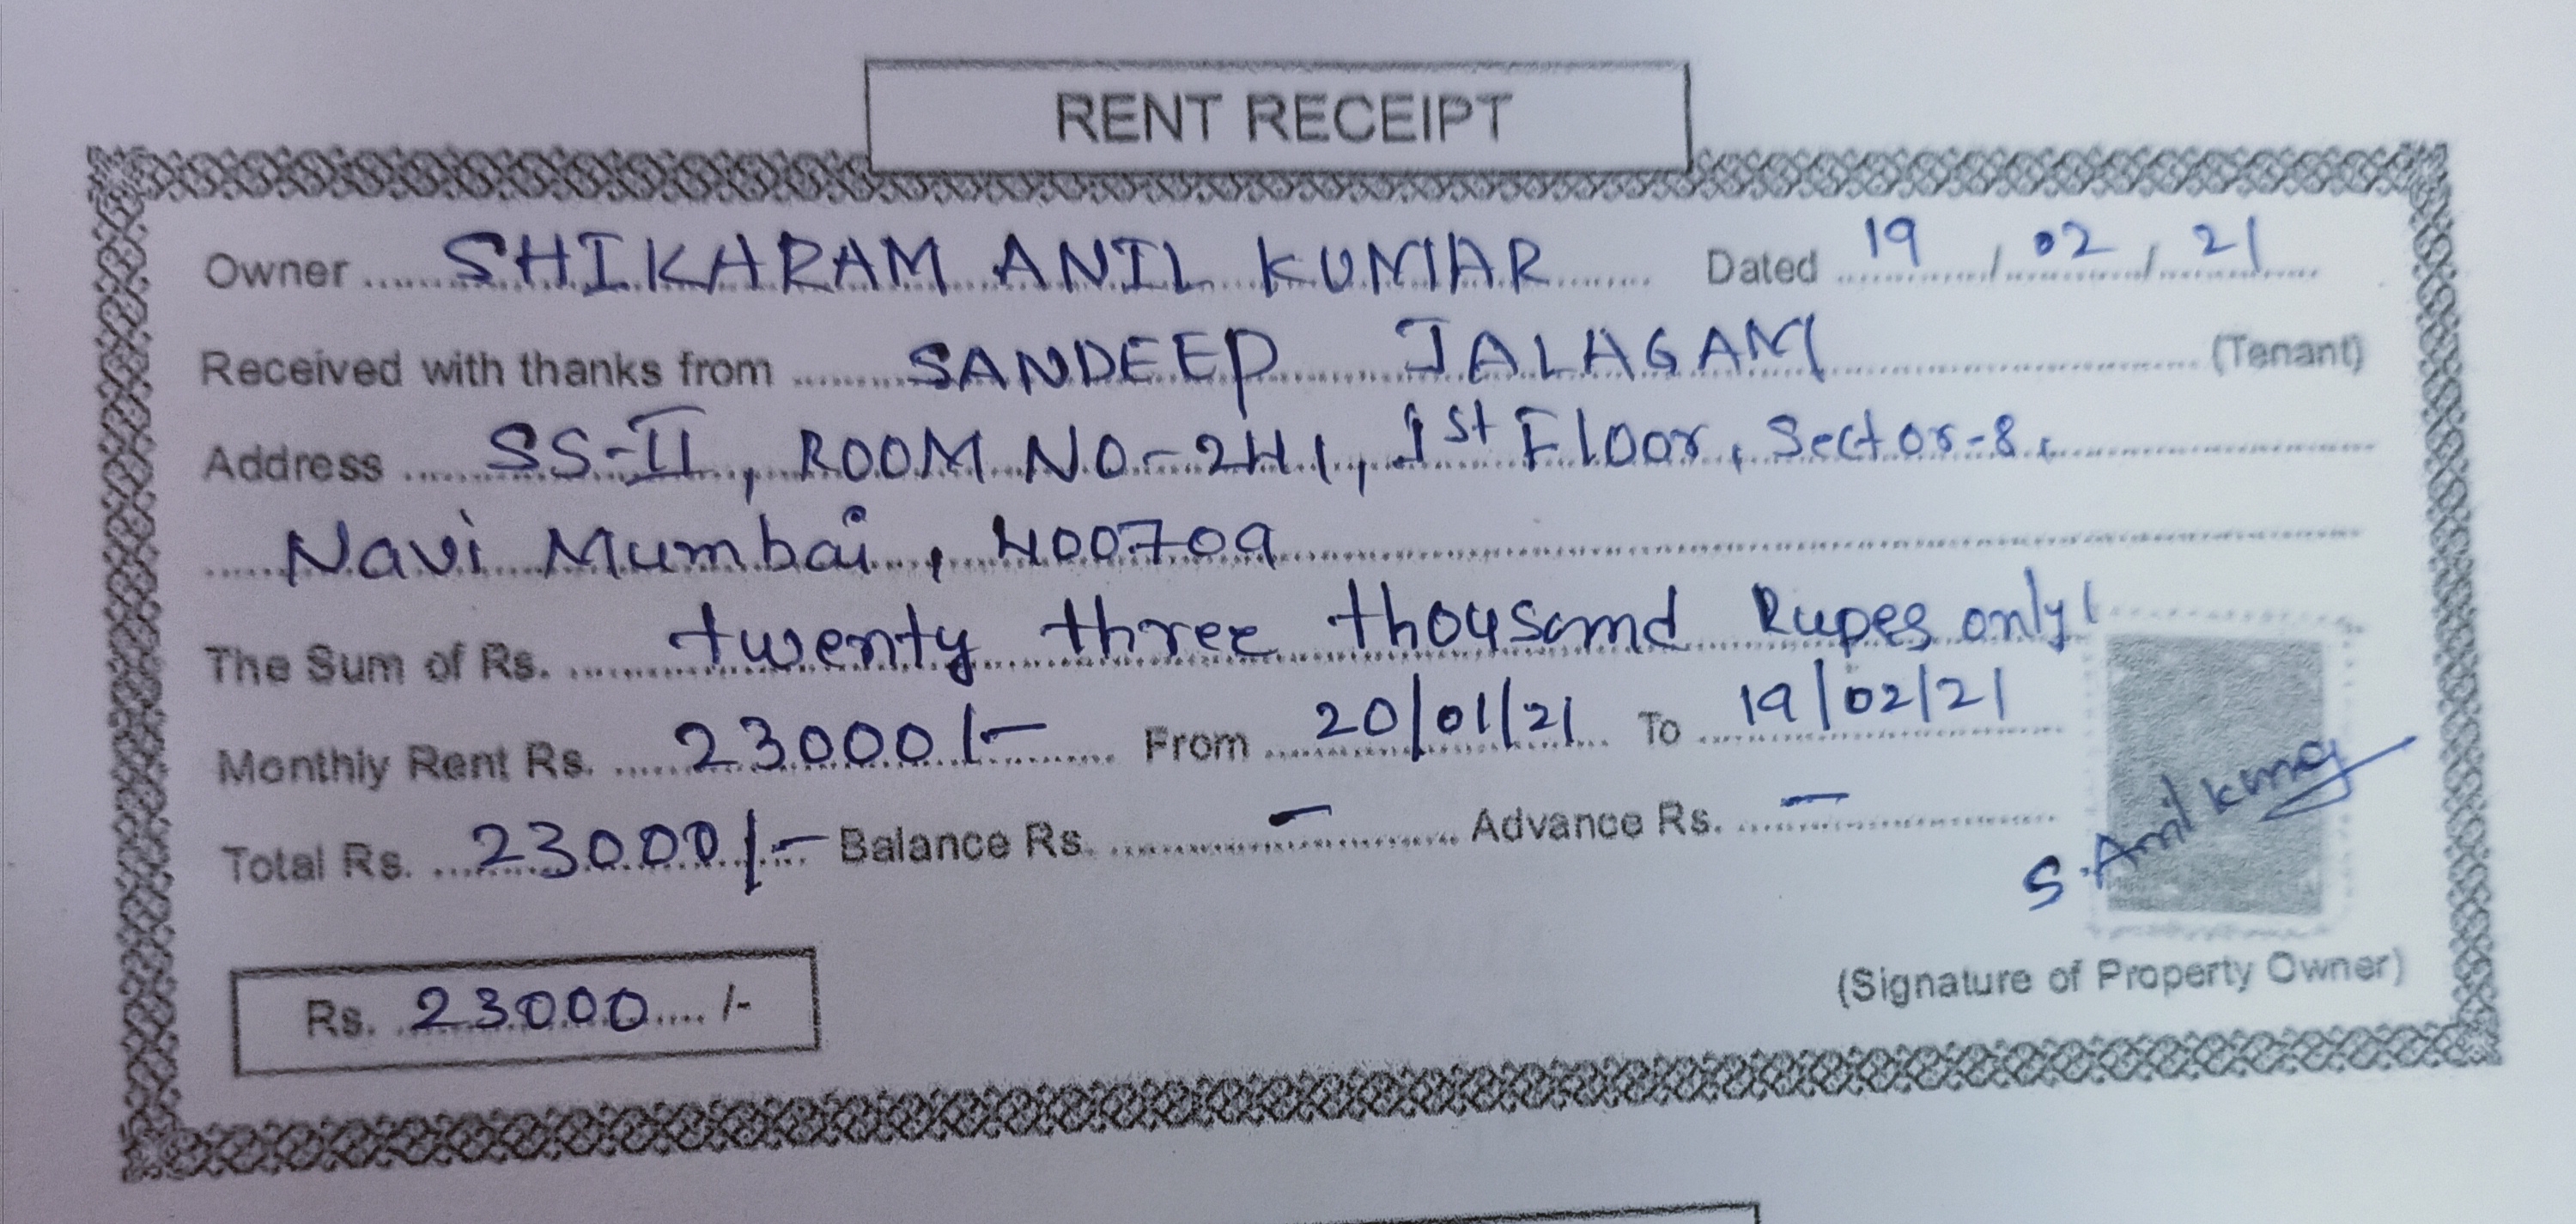 RENT RECEIPT
Owner SHIKHARAM ANIL KUMAR Dated 19 / 02 / 21
Received with thanks from SANDEEP JALAGAM (Tenant)
Address SS-II, ROOM NO-241, 1st Floor, Sector-8,
Navi Mumbai, 400709
The Sum of Rs. twenty three thousand Rupes only/
Monthly Rent Rs. 23000/- From 20/01/21 To 19/02/21
Total Rs. 23000/- Balance Rs. - Advance Rs. -
S. Anil kumar
Rs. 23000 /-
(Signature of Property Owner)